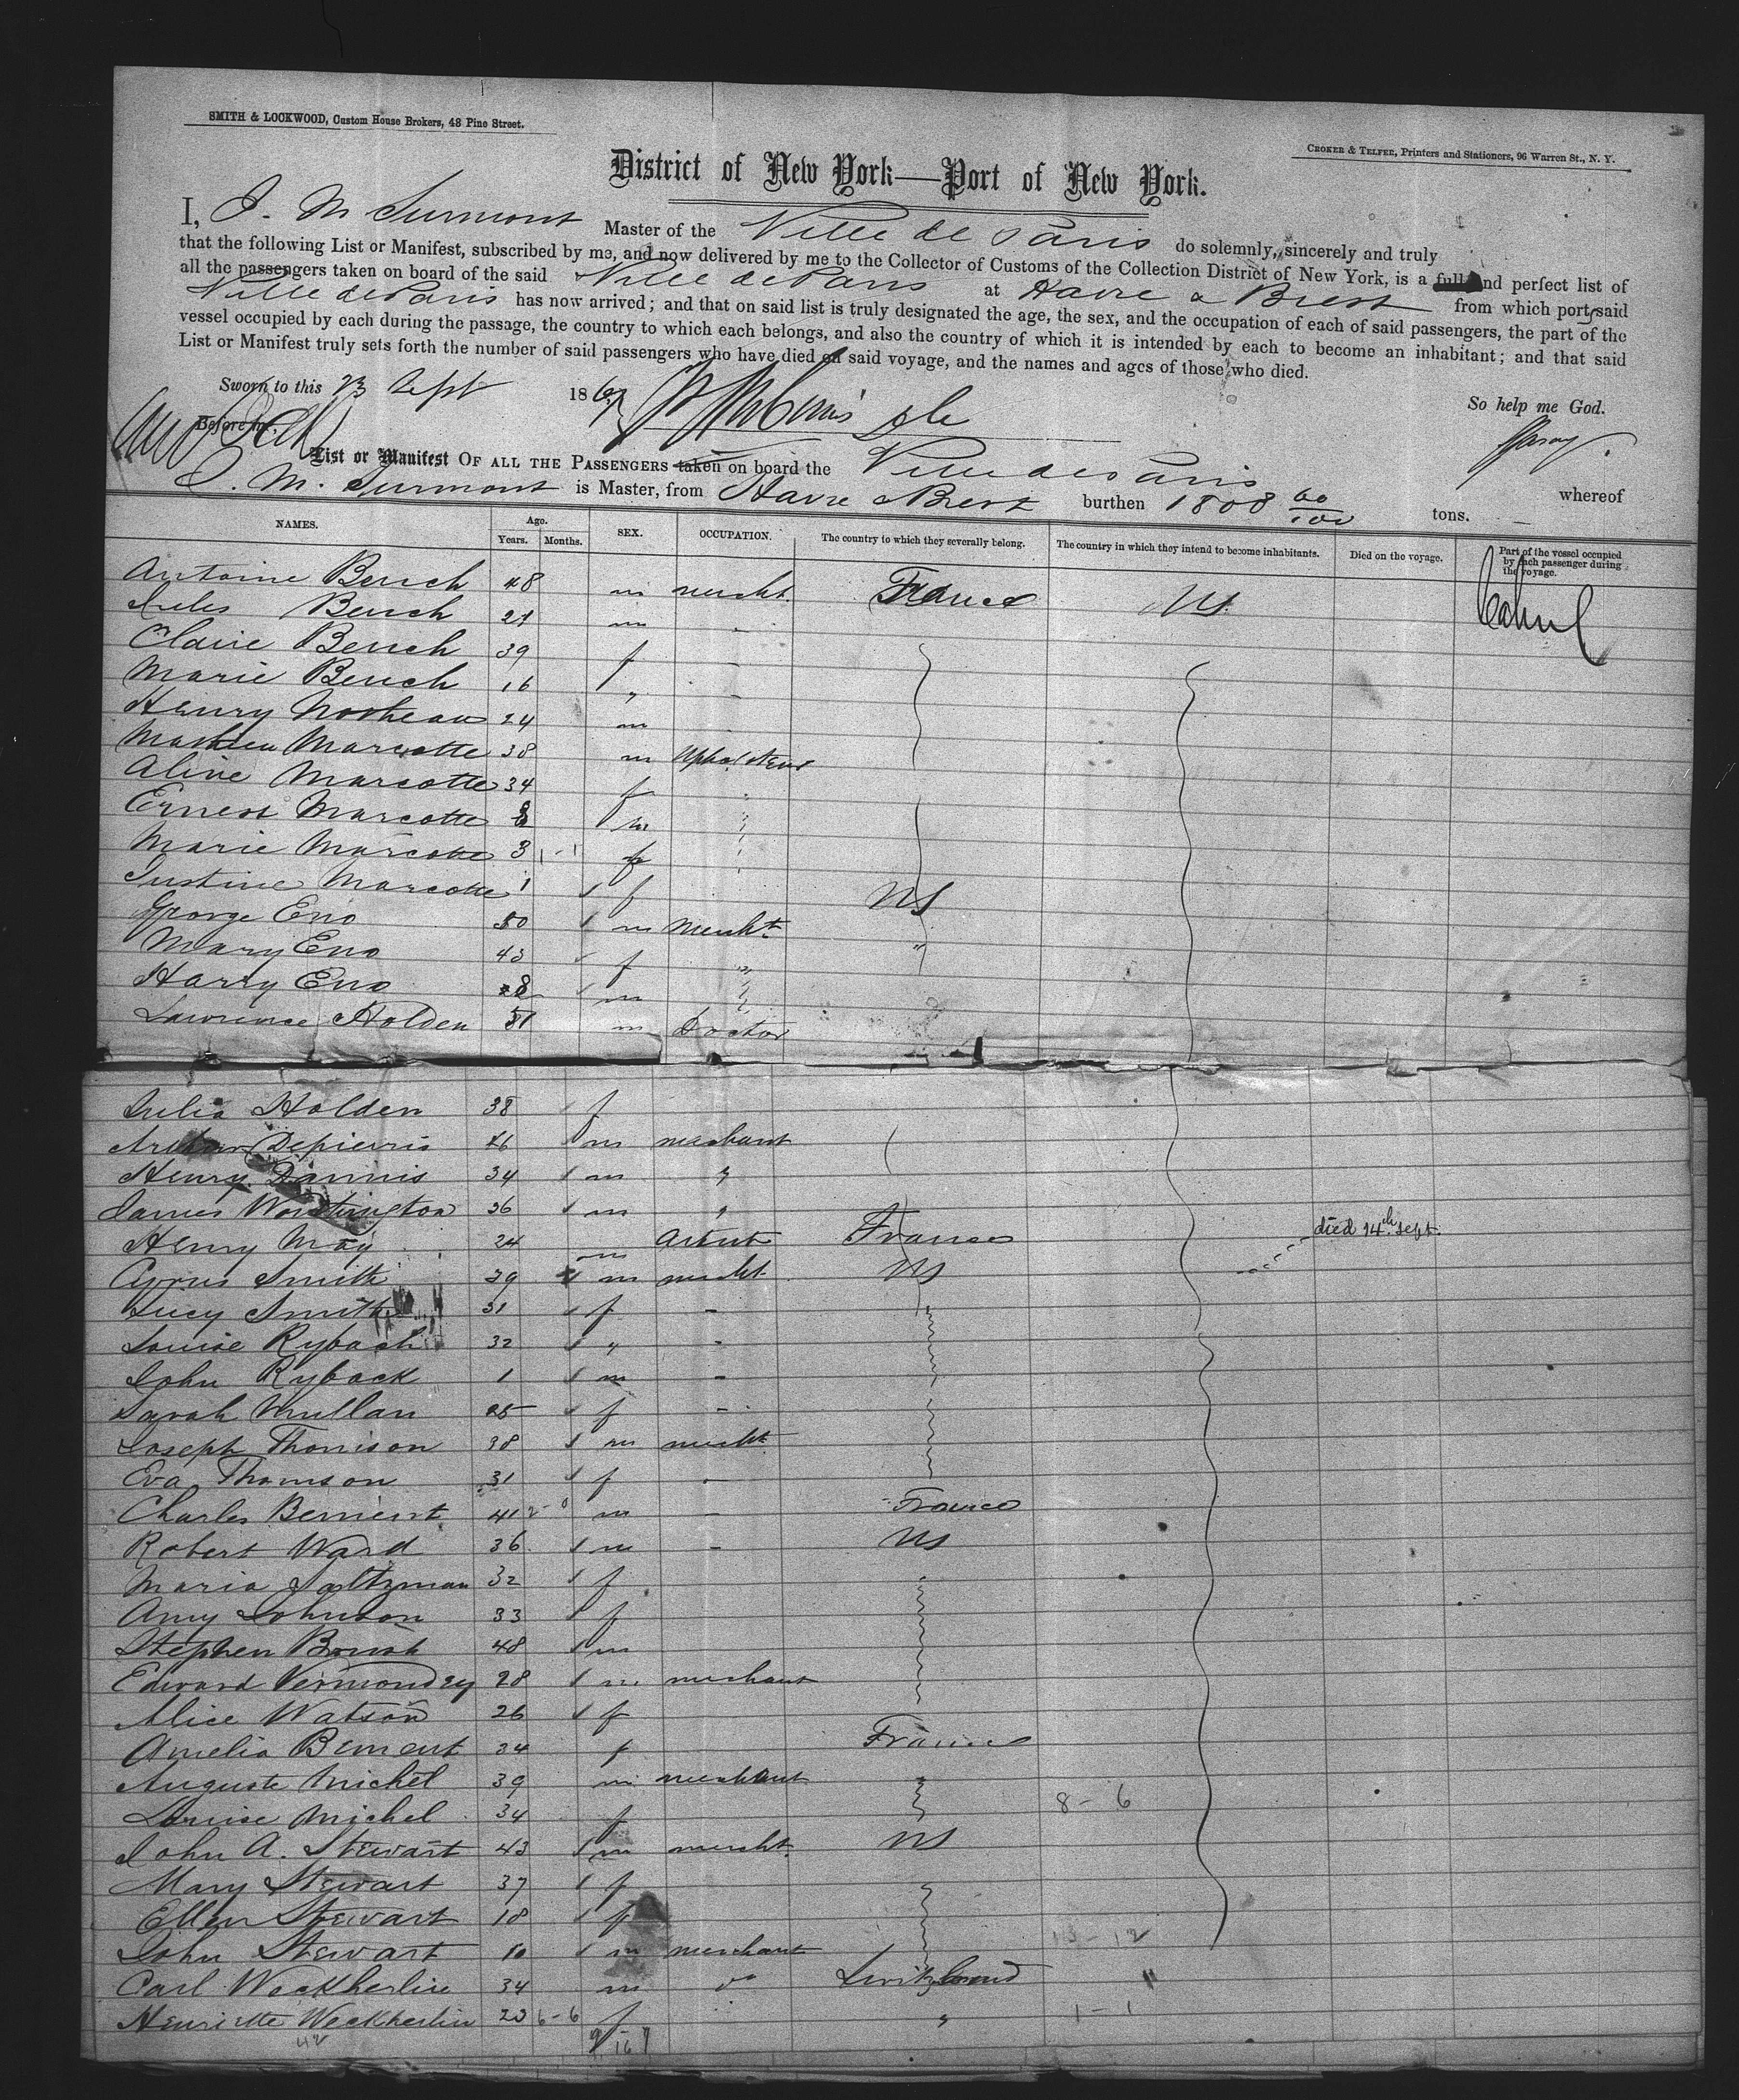 SMITH & LOCKWOOD, Custom House Brokers, 48 Pine Street.
CROKER & TELFER, Printers and Stationers, 96 Warren St., N. Y.
District of New York—Port of New York.
I, J. M Surmont Master of the Ville de Paris do solemnly, sincerely and truly
that the following List or Manifest, subscribed by me, and now delivered by me to the Collector of Customs of the Collection District of New York, is a full and perfect list of
all the passengers taken on board of the said Ville de Paris at Havre & Brest from which port said
Ville de Paris has now arrived; and that on said list is truly designated the age, the sex, and the occupation of each of said passengers, the part of the
vessel occupied by each during the passage, the country to which each belongs, and also the country of which it is intended by each to become an inhabitant; and that said
List or Manifest truly sets forth the number of said passengers who have died on said voyage, and the names and ages of those who died.
Sworn to this 23 Sept 1867
So help me God.
Before me,
List or Manifest OF ALL THE PASSENGERS taken on board the Ville de Paris whereof
J. M. Surmont is Master, from Havre & Brest burthen 1808 60/100 tons.
NAMES. Age. Years. Months. SEX. OCCUPATION. The country to which they severally belong. The country in which they intend to become inhabitants. Died on the voyage. Part of the vessel occupied by each passenger during the voyage.
Antoine Bench 48 m mercht. France US
Jules Bench 21 m
Claire Bench 39 f -
Marie Bench 16 " -
Henry 24 m
Marcotte 38 m
Aline Marcotte 34 f
Ernest Marcotte m
Marie Marcotte 3 f
Justine Marcotte 1 f US
George Eno 50 m Mercht
Mary Eno 43 f " "
Harry Eno 8 m
Lawrence Holden 51 m Doctor
Julia Holden 38 f
Arthur Depierris 46 m merchant
Henry Dannis 34 m "
James Worthington 36 m "
Henry May 24 m Artist France
Cyrus Smith 39 m mercht US died 14th Sept.
Lucy Smith 31 f -
Louise Rybach 32 " -
John Ryback 1 m -
Sarah Mullan 25 f -
Joseph Thomson 38 m mercht
Eva Thomson 31 f -
Charles Bement 41 m - France
Robert Ward 36 m - US
Maria Saltzman 32 f
Amy Johnson 33 f
Stephen 48 m
Edward 28 m merchant
Alice Watson 26 f
Amelia Bement 34 f France
Auguste Michel 39 m merchant
Louise Michel 34 f 8-6
John A. Stewart 43 m mercht. US
Mary Stewart 37 f
Ellen Stewart 18 f
John Stewart 10 m merchant 13-12
Carl Weckherlin 34 m do Switzerland "
Henriette Weckherlin 23 6-6 f " 1-1
42